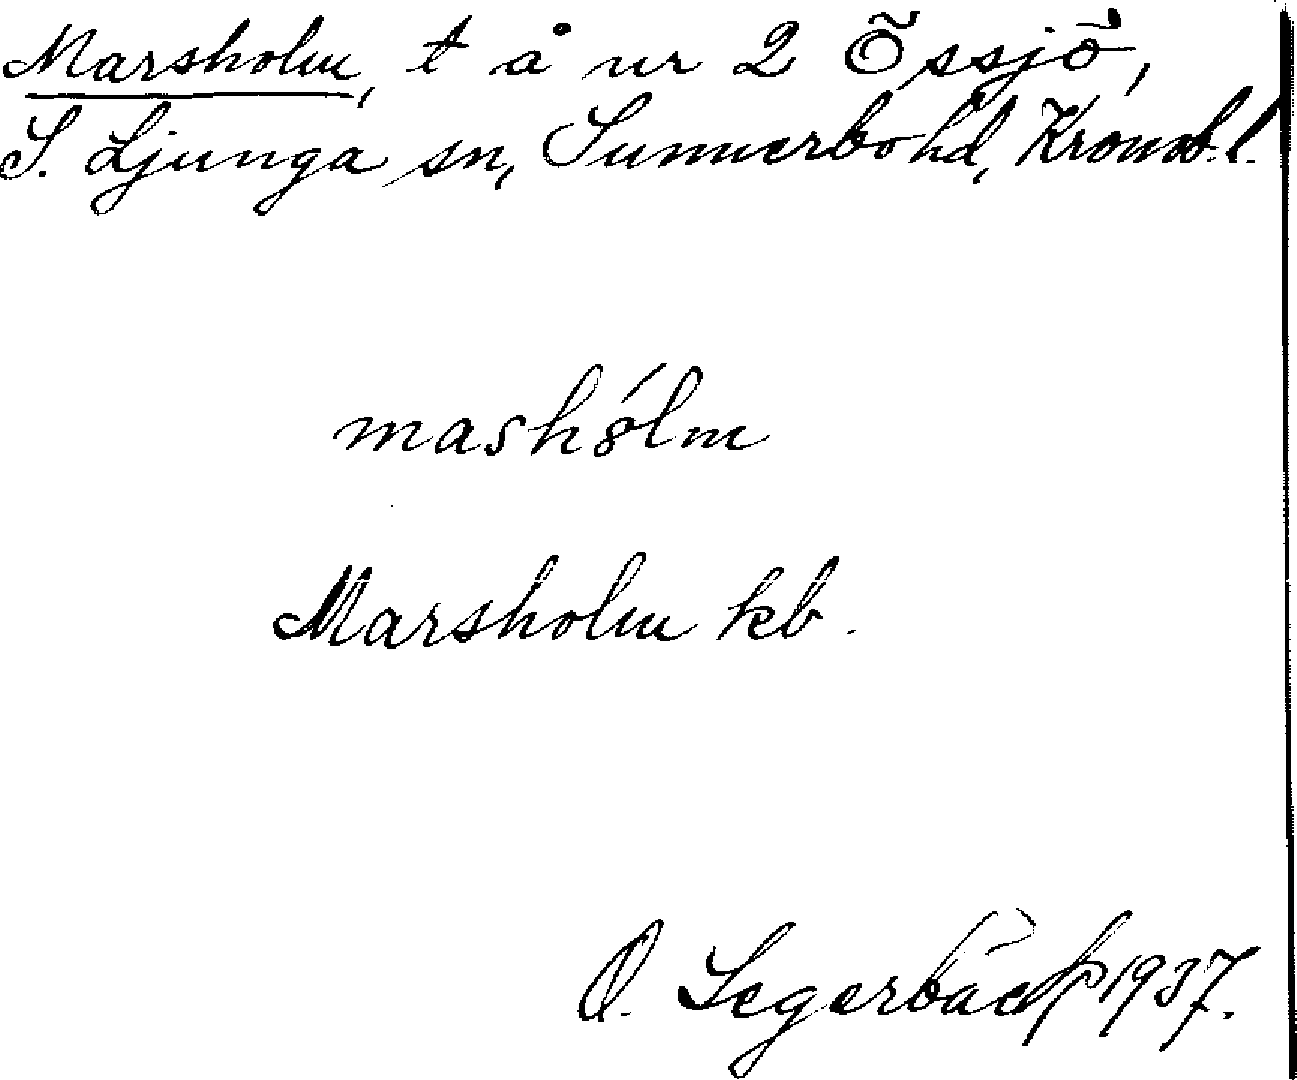 Marsholm, t å nr 2 Össjö,
S. Ljunga sn, Sunnerbo hd, Kronob. l.
mashólm
Marsholm kb.
O. Segerbäck 1937.